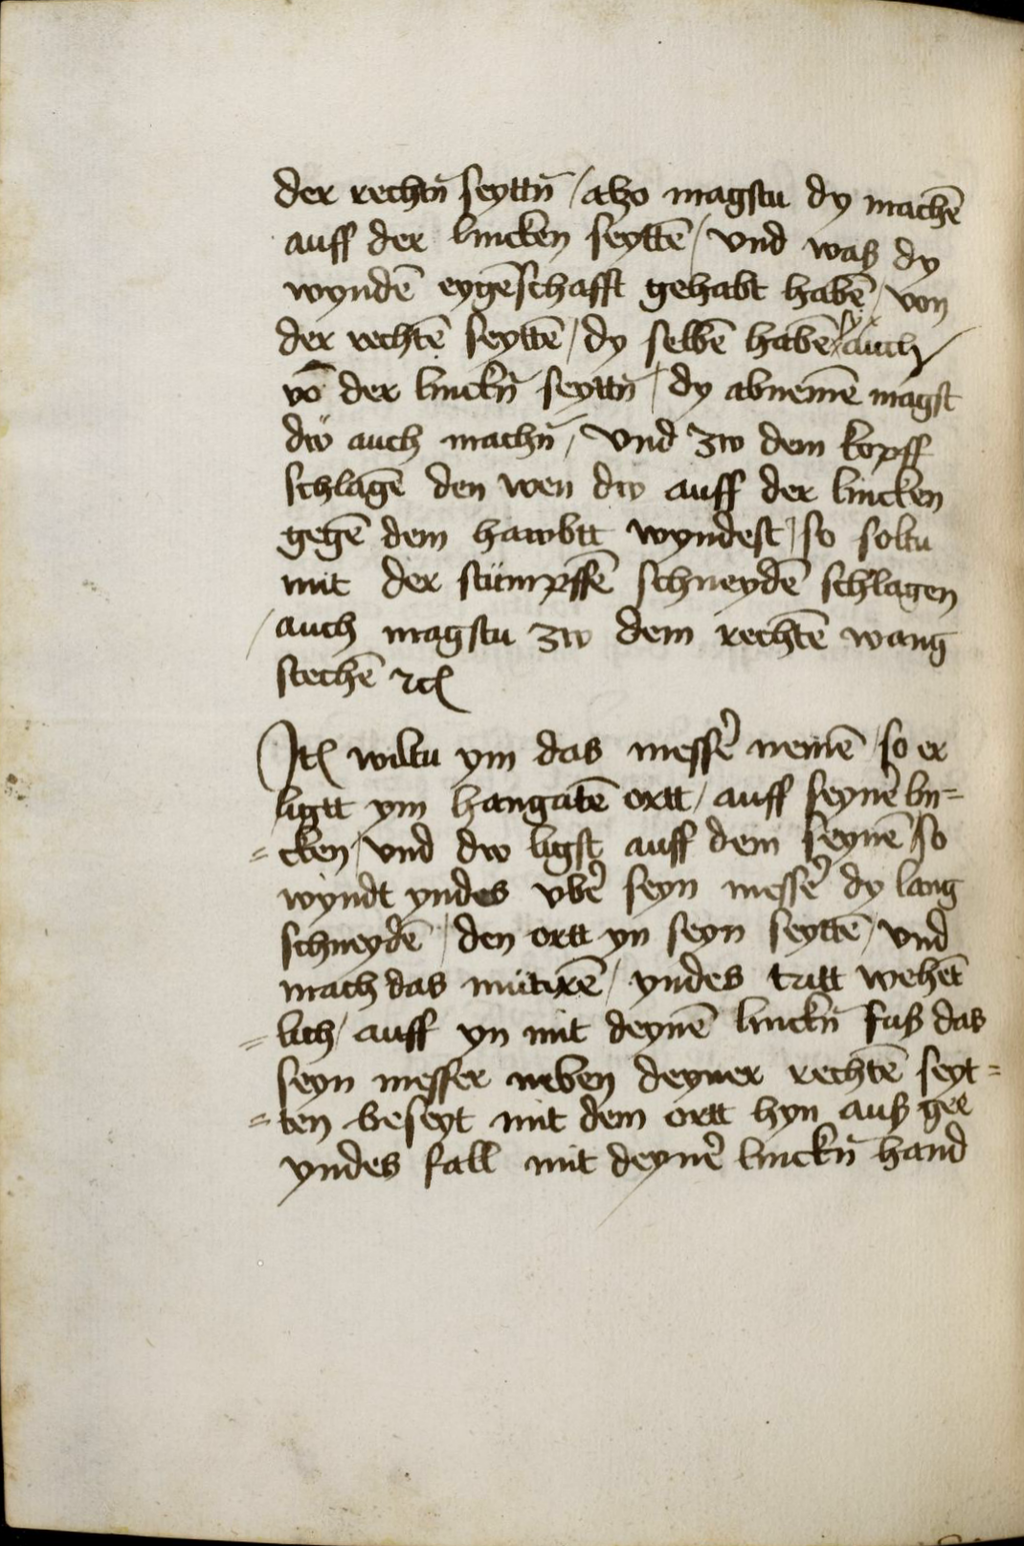 der rechtn̄ seyttn̄ / also magstu dy machē
auff der lincken seyttē / vnd waß dy
wyndē eygēschafft gehabt habē / von
der rechtē seyttē / dy selbē habē sy auch /
vō der linckn̄ seyttn̄ / dy abnemē magst
dw auch machn̄ / Vnd zw dem kopff
schlagē den wen dw auff der lincken
gegē dem hawbtt wyndest / so soltu
mit der stümpffē schneydē schlagen
/ auch magstu zw dem rechtē wang
stechē ⁊cͭ
Itͭ wiltu ym das messer̄ nemē / so er
ligtt ym hangatē ortt / auff seyner̄ lin=
=cken / Vnd dw ligst auff dem seynē / so
wyndt yndes vber̄ seyn messer̄ dy lang
schneydē / den ortt yn seyn seyttē / vnd
mach das mütirē / yndes tritt wehēt
=lich / auff yn mit deynē linckn̄ fuß das
seyn messer neben deyner rechtē seyt=
=ten beseyt mit dem ortt hyn auß gee
yndes fall mit deyner̄ linckn̄ hand